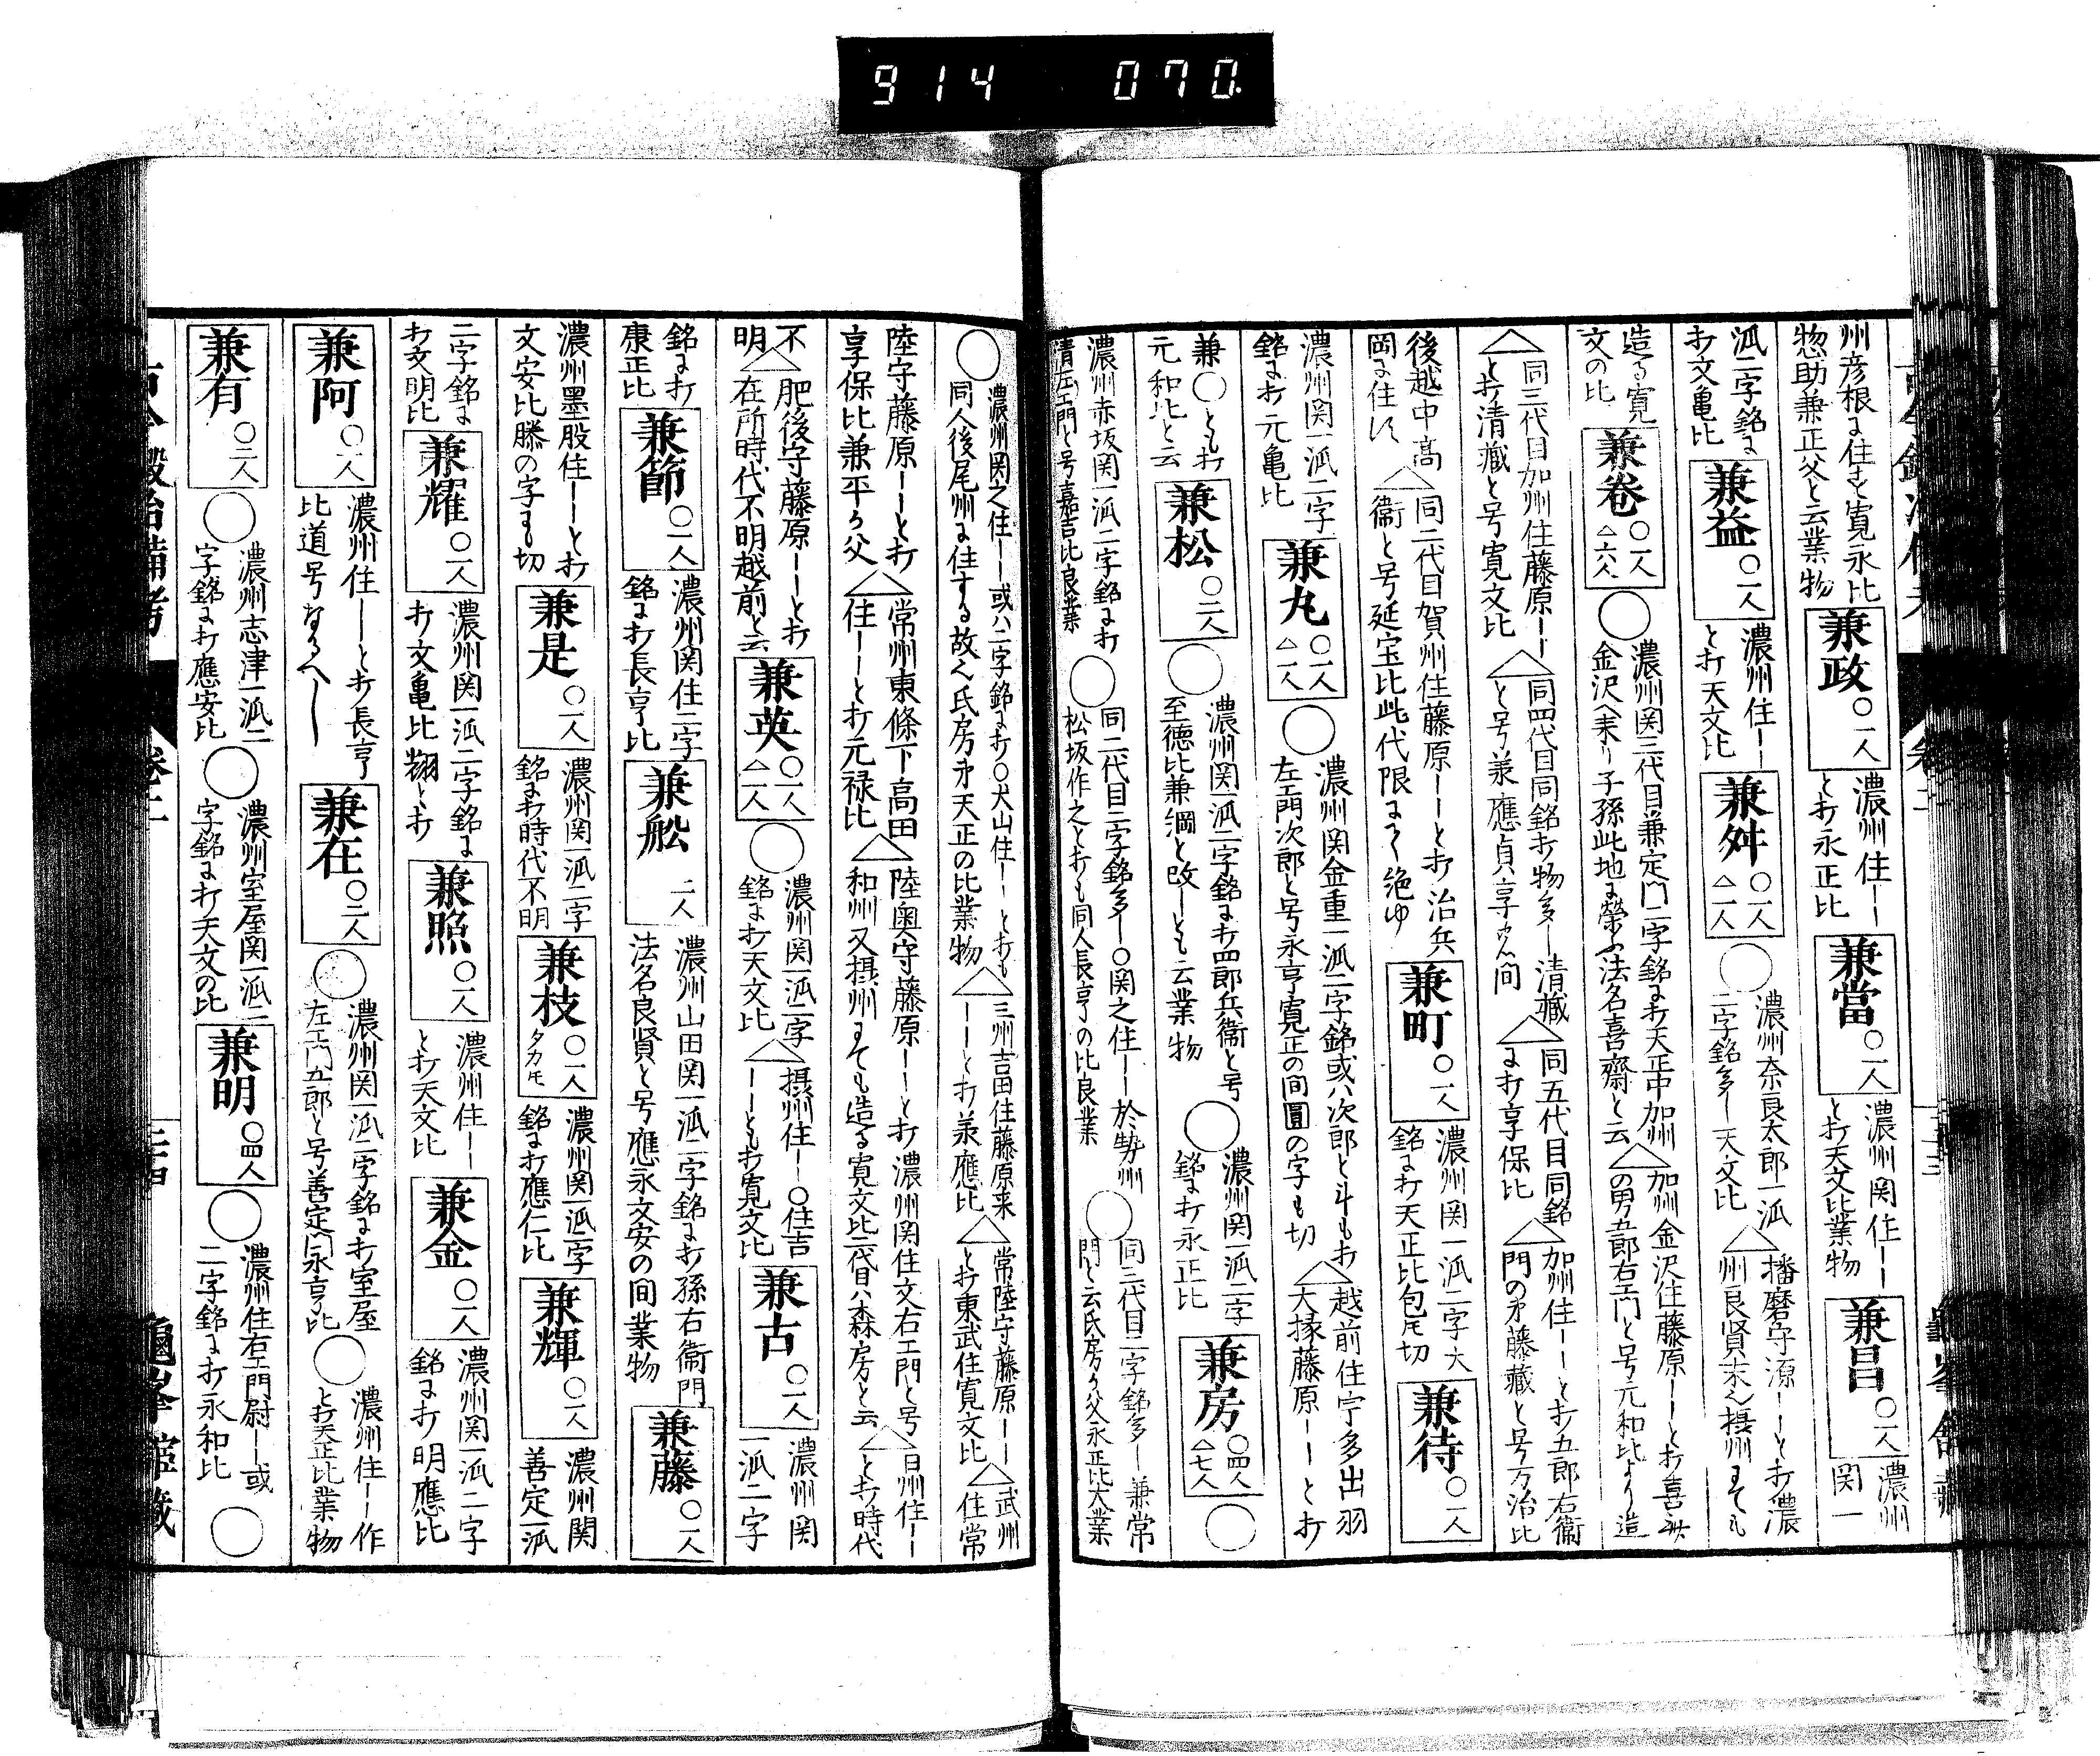 914 070
州彦根ニ住ス寛永比
惣助兼正父と云業物
兼政 〇一人
濃州住――
と打永正比
兼當 〇一人
濃州関住――
と打天文比業物
兼昌 〇一人
濃州
関一
派二字銘ニ
打文亀比
兼益 〇一人
濃州住――
と打天文比
兼舛 〇一人 △一人
〇濃州奈良太郎一派
二字銘多し天文比
△播磨守源――と打濃
州良賢末也摂州ニても
造る寛
文の比
兼巻 〇一人 △六人
〇濃州関三代目兼定門二字銘ニ打天正中加州
金沢へ来り子孫此地ニ榮ふ法名喜齋と云
△加州金沢住藤原――と打喜
の男五郎右エ門と号元和比より造
△同三代目加州住藤原――
と打清藏と号寛文比
△同四代目同銘打物多し清藏
と号承應貞享ノ間
△同五代目同銘
ニ打享保比
△加州住――と打五郎右衞
門の弟藤藏と号万治比
後越中高
岡ニ住ス
△同二代目賀州住藤原――と打治兵
衞と号延宝比此代限ニて絶ゆ
兼町 〇一人
濃州関一派二字大
銘ニ打天正比包トモ切
兼待 〇一人
濃州関一派二字
銘ニ打元亀比
兼丸 〇一人 △一人
〇濃州関金重一派二字銘或ハ次郎と斗も打
左エ門次郎と号永享寛正の间圓の字も切
△越前住字多出羽
大掾藤原――と打
兼〇とも打
元和比と云
兼松 〇二人
〇濃州関一派二字銘ニ打四郎兵衞と号
至徳比兼綱と改しとも云業物
〇濃州関一派二字
銘ニ打永正比
兼房 〇四人 △七人
〇
濃州赤坂関一派二字銘ニ打
清左エ門と号嘉吉比良業
〇同二代目二字銘多し〇関之住――於勢州
松坂作之と打も同人長亨の比良業
〇同三代目二字銘多し兼常
門と云氏房の父永正比大業
〇濃州関之住――或ハ二字銘ニ打〇犬山住――と打も
同人後尾州ニ住する故也氏房弟天正の比業物
△三州吉田住藤原来
――と打承應比
△常陸守藤原――
と打東武住寛文比
△武州
住常
陸守藤原――と打
享保比兼平の父
△常州東條下高田
住――と打元禄比
△陸奥守藤原――と打濃州関住文右エ門と号
和州又摂州ニても造る寛文比二代目ハ森房と云
△日州住――
と打時代
不
明
△肥後守藤原――と打
在所時代不明越前と云
兼英 〇一人 △一人
〇濃州関一派二字
銘ニ打天文比
△摂州住――〇住吉
――とも打寛文比
兼古 〇一人
濃州関
一派二字
銘ニ打
康正比
兼節 〇一人
濃州関住二字
銘ニ打長亨比
兼舩 二人
濃州山田関一派二字銘ニ打孫右衞門
法名良賢と号應永文安の间業物
兼藤 〇一人
濃州墨股住――と打
文安比縢の字も切
兼是 〇一人
濃州関一派二字
銘ニ打時代不明
兼枝 〇一人 タカトモ
濃州関一派二字
銘ニ打應仁比
兼輝 〇一人
濃州関
善定一派
二字銘ニ
打文明比
兼耀 〇一人
濃州関一派二字銘ニ
打文亀比翔と打
兼照 〇一人
濃州住――
と打天文比
兼金 〇一人
濃州関一派二字
銘ニ打明應比
兼阿 〇一人
濃州住――と打長亨
比道号なるへし
兼在 〇二人
〇濃州関一派二字銘ニ打室屋
左エ門五郎と号善定門永亨比
〇濃州住――作
と打天正比業物
兼有 〇二人
〇濃州志津一派二
字銘ニ打應安比
〇濃州室屋関一派二
字銘ニ打天文の比
兼明 〇四人
〇濃州住右エ門尉――或
二字銘ニ打永和比
〇
古今鍛冶備考 卷二 三十四 龜峯舘藏